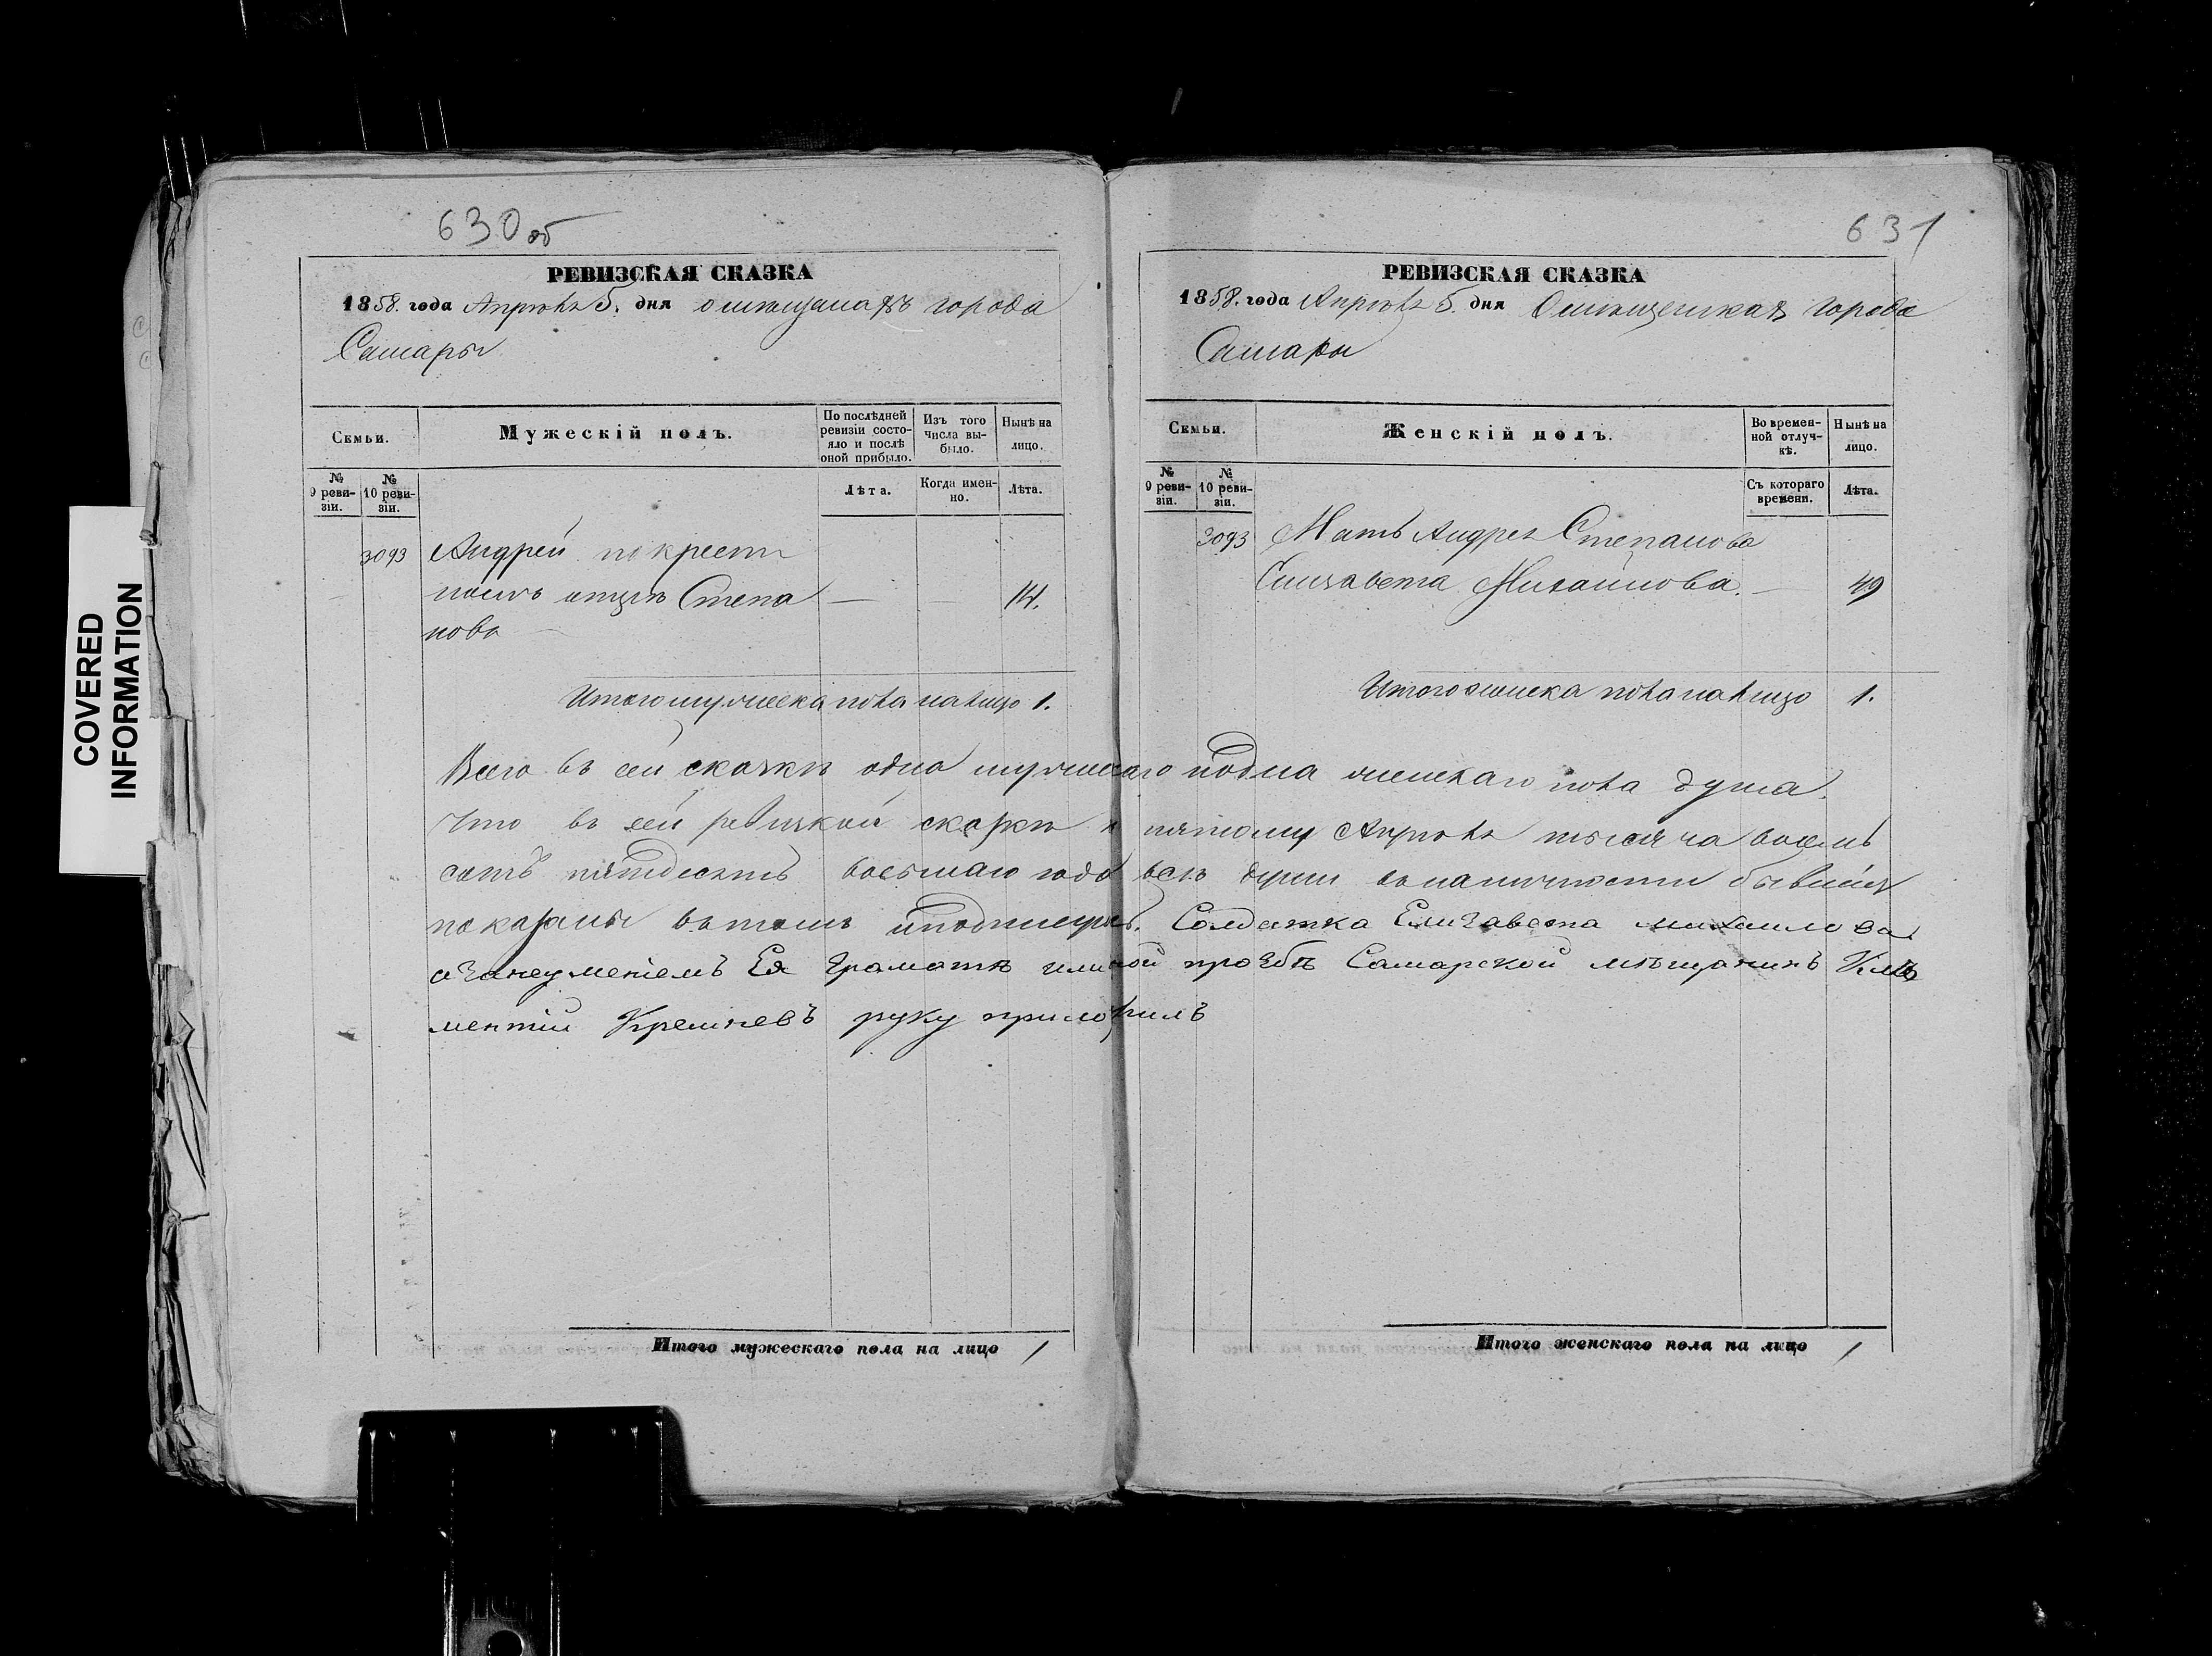 COVERED
INFORMATION
630 об
РЕВИЗСКАЯ СКАЗКА
1858. года Апрѣля 5. дня о мѣщанахъ города
Самары
Семьи.
Мужескій полъ.
По послѣдней ревизіи состояло и послѣ оной прибыло.
Изъ того числа выбыло.
Нынѣ на лицо.
№ 9 ревизіи.
№ 10 ревизіи.
Лѣта.
Когда именно.
Лѣта.
3093 Андрей по крест
ному отцѣ Степа — — 14.
новъ
Итого мужеска пола налицо 1.
631
РЕВИЗСКАЯ СКАЗКА
1858. года Апрѣля 5. дня О мѣщанкахъ города
Самары
Семьи.
Женскій полъ.
Во временной отлучкѣ.
Нынѣ на лицо.
№ 9 ревизіи.
№ 10 ревизіи.
Съ котораго времени.
Лѣта.
3093 Мать Андрея Степанова
Елизавета Михайлова. — 49
Итого женска пола налицо 1.
Всего въ сей сказкѣ одна мужескаго пола женскаго пола душа.
Что въ сей ревизкой сказкѣ къ пятому Апрѣля тысяча восемь
сотъ пятдесятъ восьмаго года всѣ души въ наличности бывшія
показаны въ томъ и подпишусь. Солдатка Елизавета михаилова
а Занеуменіемъ Ея Грамотѣ ипной прозбѣ Самарской мѣщанинъ Кле
ментіи руку приложилъ
Итого мужескаго пола на лицо 1
Итого женскаго пола на лицо 1